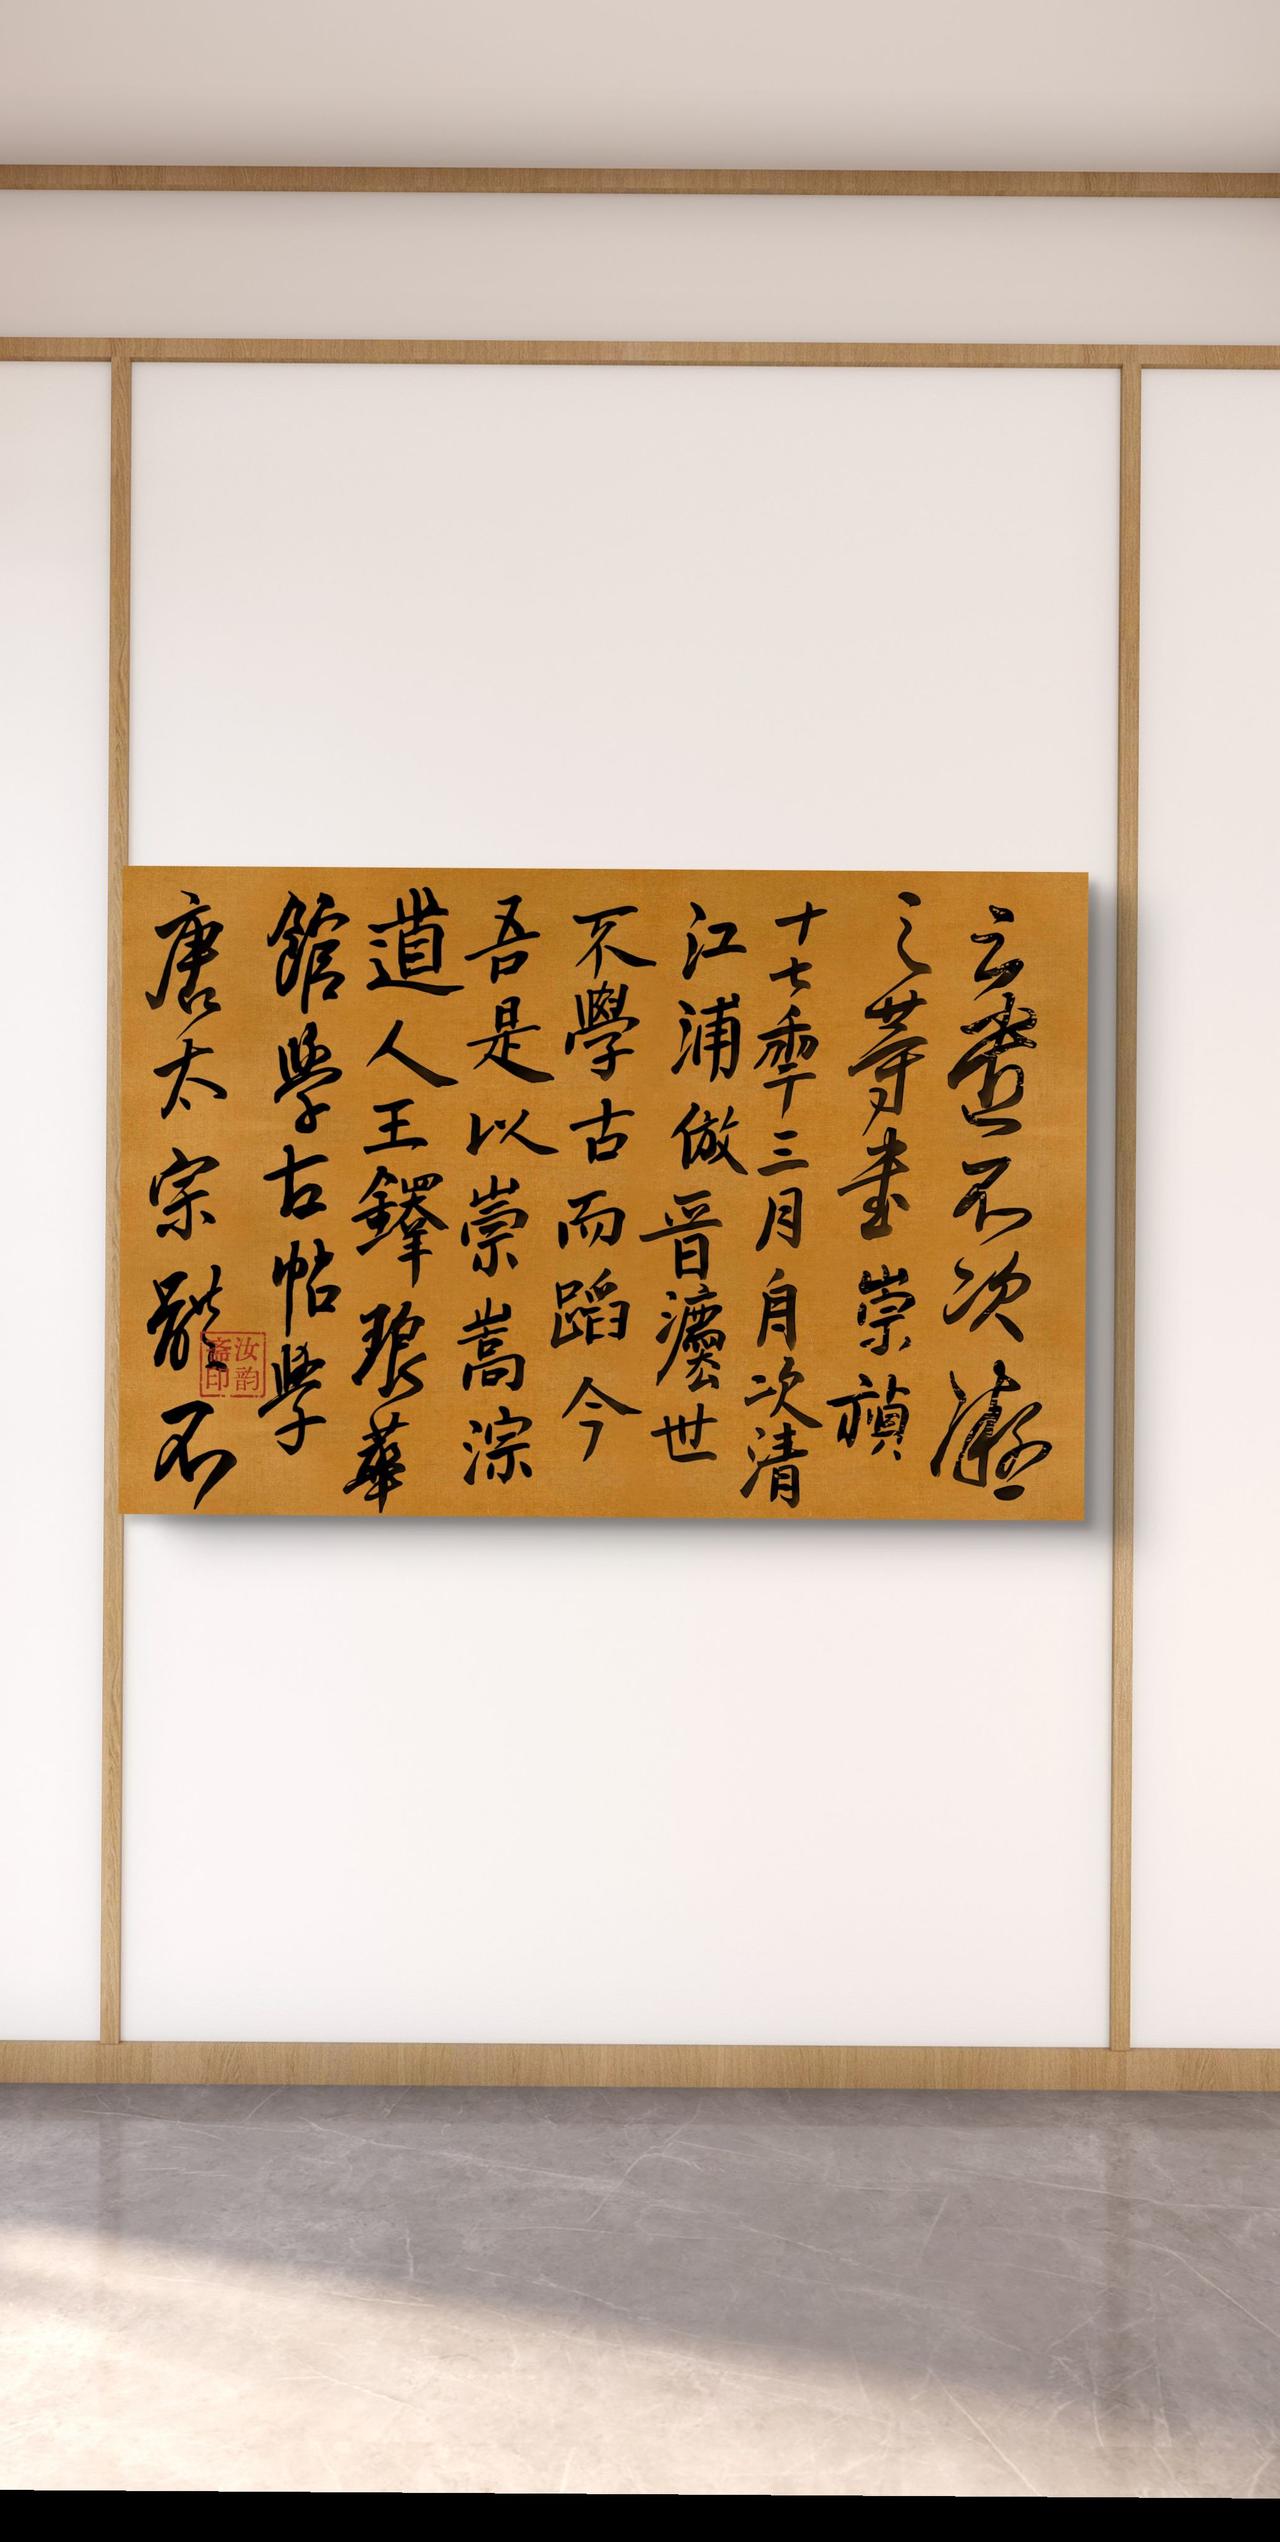 云盡不次凝
之等書崇禎
十七秊三月自次清
江浦倣晉灋世
不學古而蹈今
吾是以崇嵩淙
道人王鐸琅華
館學古帖學
唐太宗體不
汝韵
斋印